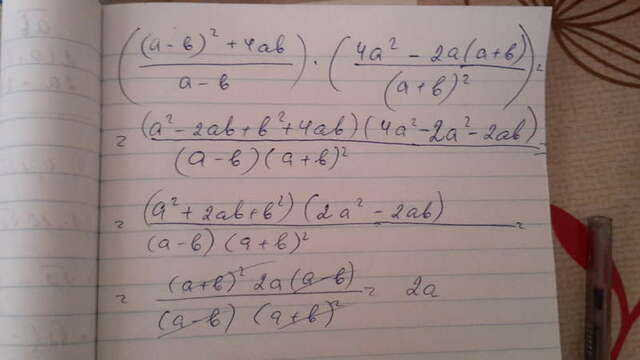 ( ((a-b)² + 4ab) / (a-b) ) · ( (4a² - 2a(a+b)) / (a+b)² ) =
= ((a² - 2ab + b² + 4ab)(4a² - 2a² - 2ab)) / ((a-b)(a+b)²) =
= ((a² + 2ab + b²)(2a² - 2ab)) / ((a-b)(a+b)²) =
= ((a+b)² 2a(a-b)) / ((a-b)(a+b)²) = 2a